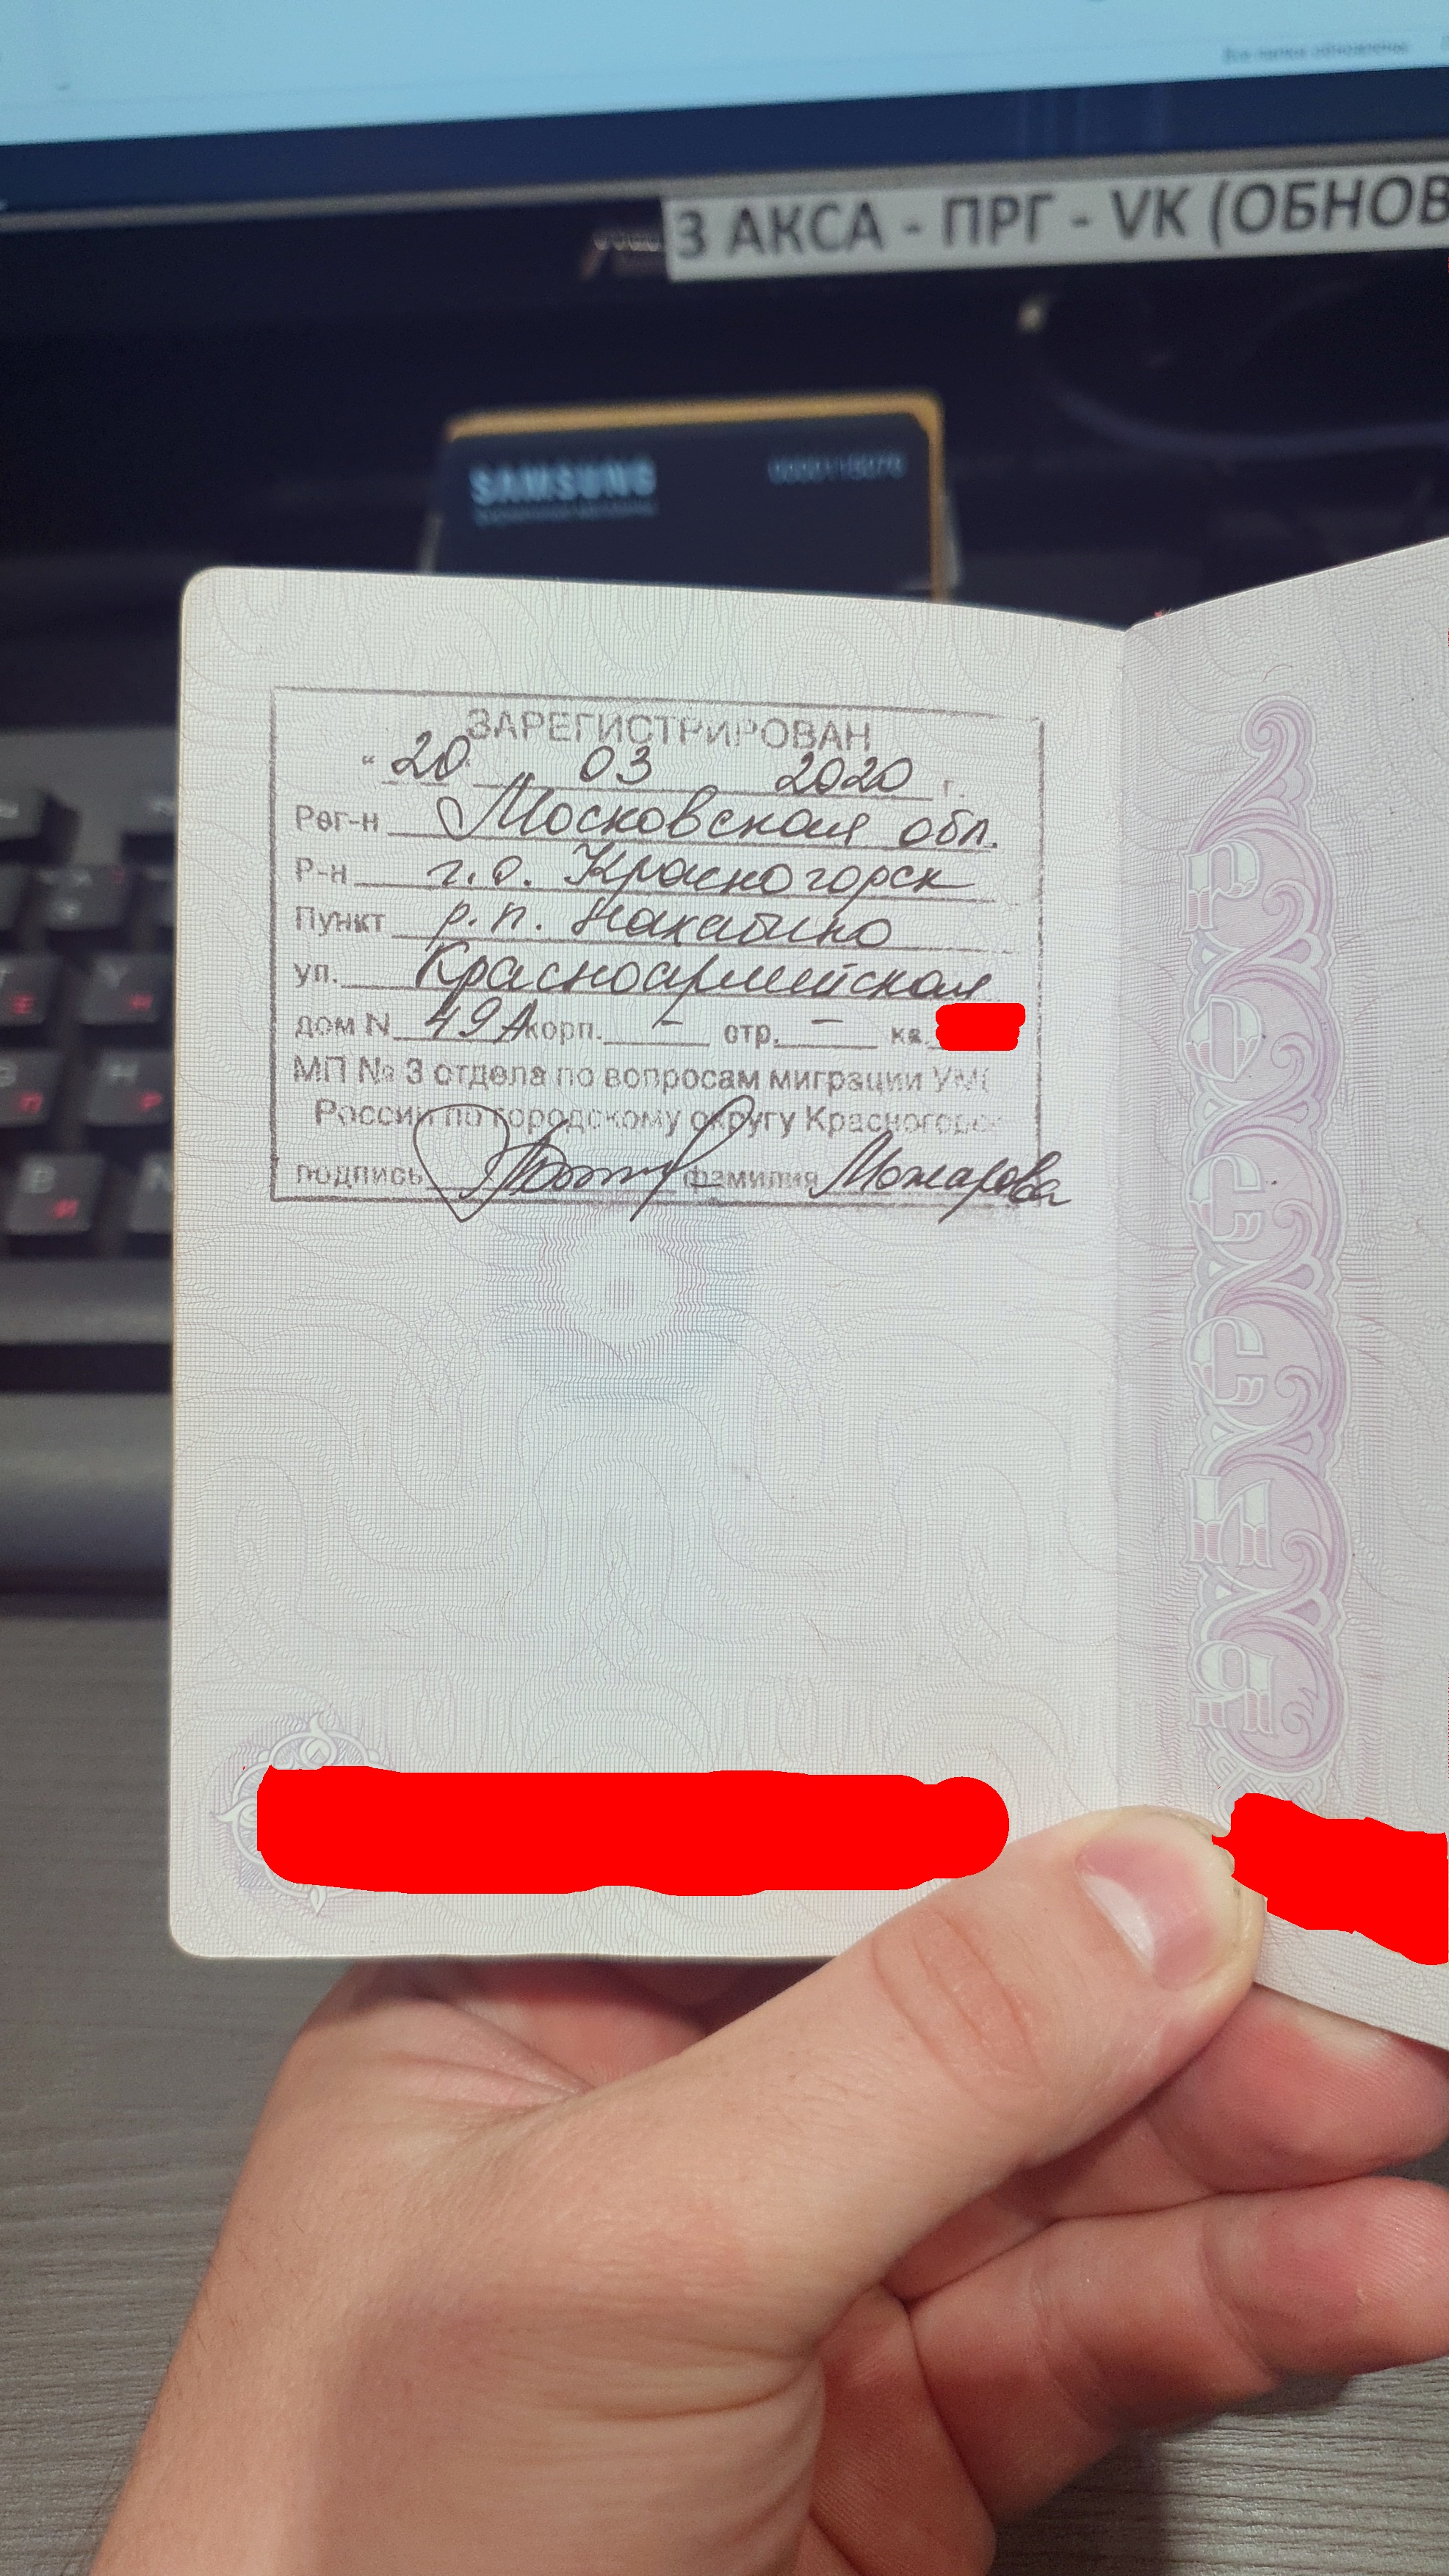 Все папки обновлены.
3 АКСА - ПРГ - VK (ОБНОВ
SAMSUNG
ЗАРЕГИСТРИРОВАН
" 20 03 2020 г.
Рег-н Московская обл.
Р-н г.о. Красногорск
Пункт р.п. Нахабино
ул. Красноармейская
дом N 49А корп. – стр. – кв.
МП № 3 отдела по вопросам миграции УМ
России по городскому округу Красногорс
подпись фамилия Можарова
РОССИЯ